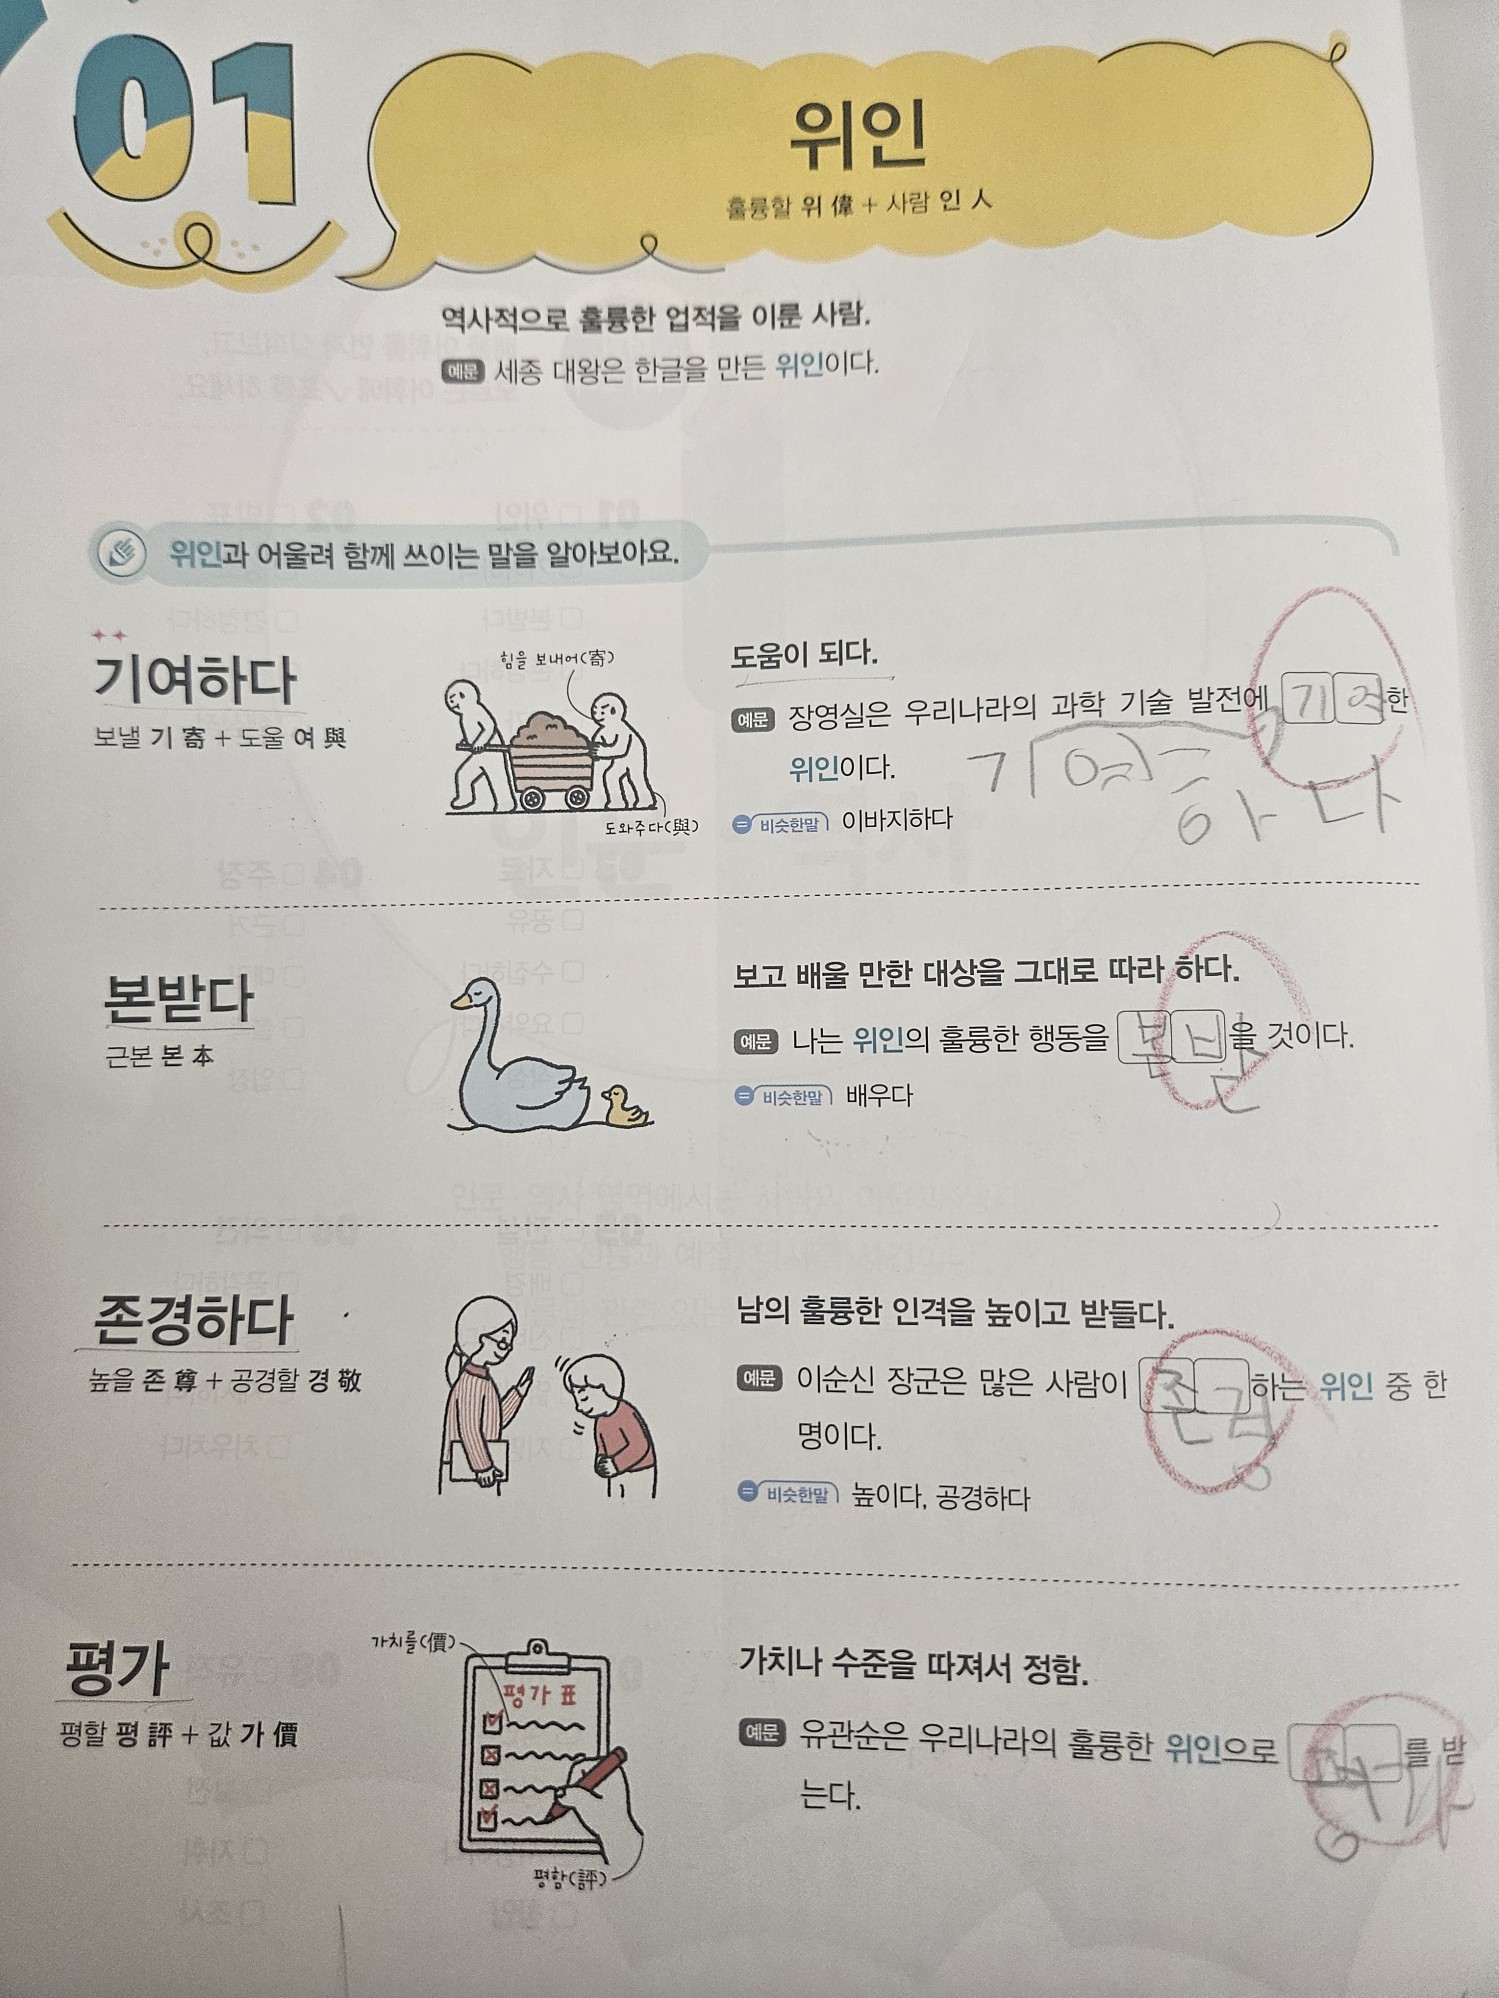 01
위인
훌륭할 위 偉 + 사람 인 人
역사적으로 훌륭한 업적을 이룬 사람.
예문 세종 대왕은 한글을 만든 위인이다.
위인과 어울려 함께 쓰이는 말을 알아보아요.
기여하다
보낼 기 寄 + 도울 여 與
힘을 보내어(寄)
도와주다(與)
도움이 되다.
예문 장영실은 우리나라의 과학 기술 발전에 기여한
위인이다.
기여
하다
= 비슷한말 이바지하다
본받다
근본 본 本
보고 배울 만한 대상을 그대로 따라 하다.
예문 나는 위인의 훌륭한 행동을 본받을 것이다.
= 비슷한말 배우다
존경하다
높을 존 尊 + 공경할 경 敬
남의 훌륭한 인격을 높이고 받들다.
예문 이순신 장군은 많은 사람이 존경하는 위인 중 한
명이다.
= 비슷한말 높이다, 공경하다
평가
평할 평 評 + 값 가 價
가치를(價)
평가 표
평함(評)
가치나 수준을 따져서 정함.
예문 유관순은 우리나라의 훌륭한 위인으로 평가를 받
는다.